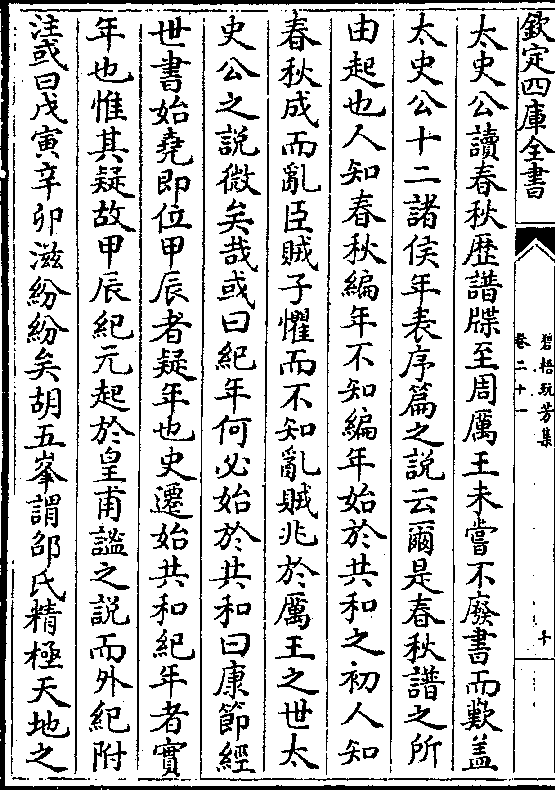 欽定四庫全書
碧梧玩芳集
卷二十一
十
太史公讀春秋歴譜牒至周厲王未嘗不廢書而歎葢
太史公十二諸侯年表序篇之說云爾是春秋譜之所
由起也人知春秋編年不知編年始於共和之初人知
春秋成而亂臣賊子懼而不知亂賊兆於厲王之世太
史公之說微矣哉或曰紀年何必始於共和曰康節經
世書始堯即位甲辰者疑年也史遷始共和紀年者實
年也惟其疑故甲辰紀元起於皇甫謐之說而外紀附
注或曰戊寅辛卯滋紛紛矣胡五峯謂邵氏精極天地之